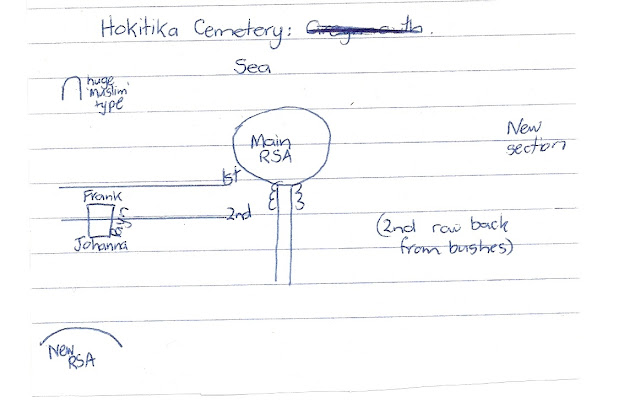 Hokitika Cemetery: Greymouth.
Sea
huge
'muslim'
type
Main
RSA
New
section
1st
Frank
2nd
Johanna
(2nd row back
from bushes)
New
RSA